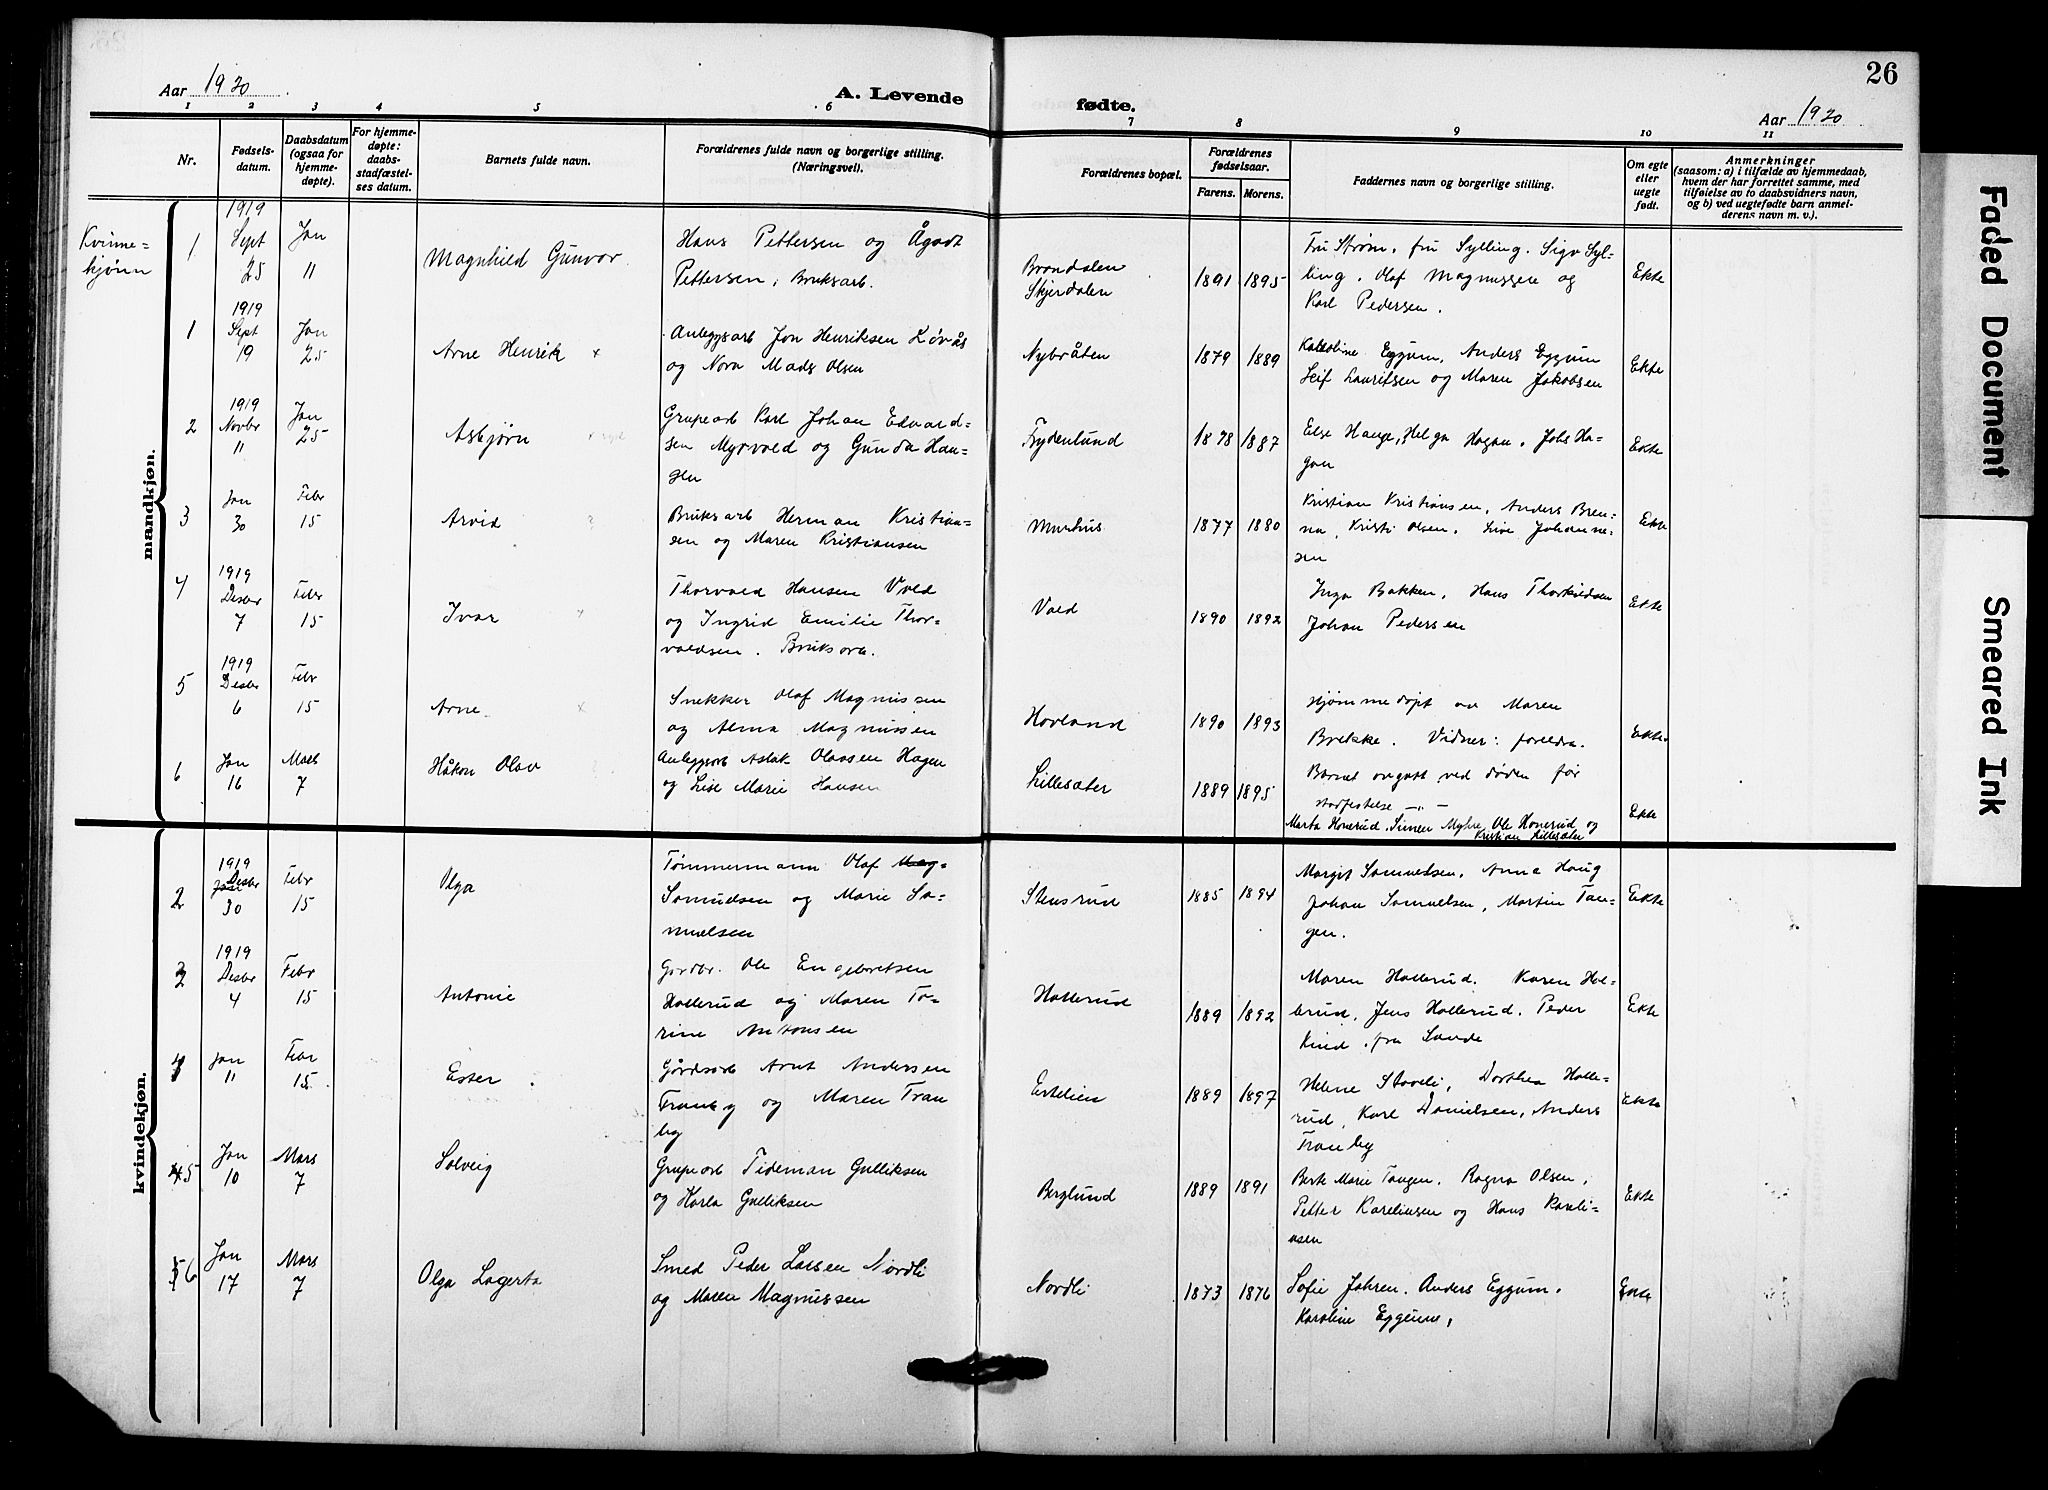 26
Aar 1920
A. Levende
fødte.
Aar 1920
1 2 3 4 5 6 7 8 9 10 11
Nr.
Fødsels-
datum.
Daabsdatum
(ogsaa for
hjemme-
døpte).
For hjemme-
døpte:
daabs-
stadfæstel-
ses datum.
Barnets fulde navn.
Forældrenes fulde navn og borgerlige stilling.
(Næringsvei).
Forældrenes bopæl.
Forældrenes
fødselsaar.
Farens. Morens.
Faddernes navn og borgerlige stilling.
Om egte
eller
uegte
født.
Anmerkninger
(saasom: a) i tilfælde av hjemmedaab,
hvem der har forrettet samme, med
tilføielse av to daabsvidners navn,
og b) ved uegtefødte barn anmel-
derens navn m. v.).
Kvinne-
kjønn
mandkjøn.
1
1919
Sept
25
Jan
11
Magnhild Gunvor
Hans Pettersen og Ågodt
Pettersen, Bruksarb.
Brandalen
Skjerdalen
1891 1895
Fru Strøm, fru Sylling. Sigv Syl-
ling. Olaf Magnussen og
Karl Pedersen.
Ekte
1
1919
Sept
19
Jan
25
Arne Henrik
Anleggsarb Jon Henriksen Løvås
og Nora Mads Olsen
Nybråten
1879 1889
Eggum, Anders Eggum
Leif Lauritsen og Maren Jakobsen
Ekte
2
1919
Novbr
11
Jan
25
Asbjørn
Grupearb Karl Johan Edvard-
sen Myrvold og Gunda Han-
sen
Frydenlund
1878 1887
Else Hauge, Helga Hagan, Johs Ha-
gan
Ekte
3
Jan
30
Febr
15
Arvid
Bruksarb Herman Kristian-
sen og Maren Kristiansen
Murhus
1877 1880
Kristian Kristiansen, Anders Bren-
na, Kristi Olsen, Live Johanne-
sen
Ekte
4
1919
Desbr
7
Febr
15
Ivar
Thorvald Hansen Vold
og Ingrid Emilie Thor-
valdsen. Bruksarb.
Vold
1890 1892
Inga Bakken, Hans Thorkildsen
Johan Pedersen
Ekte
5
1919
Desbr
6
Febr
15
Arne
Snekker Olaf Magnussen
og Alma Magnussen
Hovland
1890 1893
Hjemmedøpt av Maren
Brekke. Vidner: foreldra.
Ekte
6
Jan
16
Mars
7
Håkon Olav
Anleggsarb Aslak Olavsen Hagen
og Lise Marie Hansen
Lillesæter
1889 1895
Barnet avgått ved døden før
stadfestelse —"—
Marta Honerud, Simen Myhre, Ole Honerud og
Kristian Lillesæter
Ekte
kvindekjøn.
2
1919
Desbr
Jan
30
Febr
15
Olga
Tømmermann Olaf Mag-
Samuelsen og Marie Sa-
muelsen
Stensrud
1885 1894
Margit Samuelsen, Anna Haug
Johan Samuelsen, Martin Tan-
gen.
Ekte
3
1919
Desbr
4
Febr
15
Antonie
Gardbr. Ole Engebretsen
Hollerud og Maren To-
rine Antonsen
Hollerud
1889 1892
Maren Hollerud. Karen Hol-
brud, Jens Hollerud. Peder
Kind. fra Sande
Ekte
4
Jan
11
Febr
15
Ester
Gårdsarb Arnt Andersen
Tranby og Maren Tran
by
Eselien
1889 1897
Helene Stavli, Dorthea Holle-
rud, Karl Danielsen, Anders
Tranby
Ekte
4 5
Jan
10
Mars
7
Solveig
Grupearb Tideman Gulliksen
og Karla Gulliksen
Berglund
1889 1891
Berte Marie Tangen. Ragna Olsen,
Petter Kareliusen og Hans Kareli-
usen
Ekte
5 6
Jan
17
Mars
7
Olga Lagerta
Smed Peder Larsen Nordli
og Maren Magnussen
Nordli
1873 1876
Sofie Jahren. Anders Eggum.
Karoline Eggum,
Ekte
Faded Document
Smeared Ink